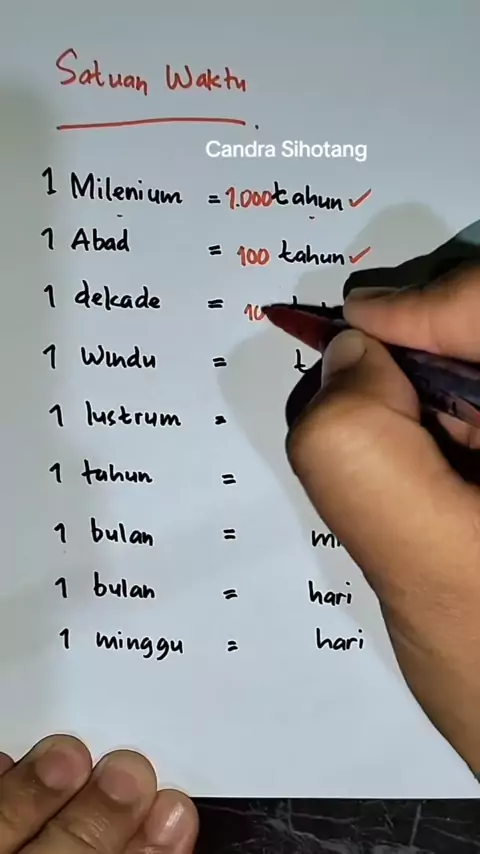 Satuan Waktu
Candra Sihotang
1 Milenium = 1.000 tahun ✓
1 Abad = 100 tahun ✓
1 dekade = 10
1 Windu = t
1 lustrum =
1 tahun =
1 bulan =
1 bulan = hari
1 minggu = hari